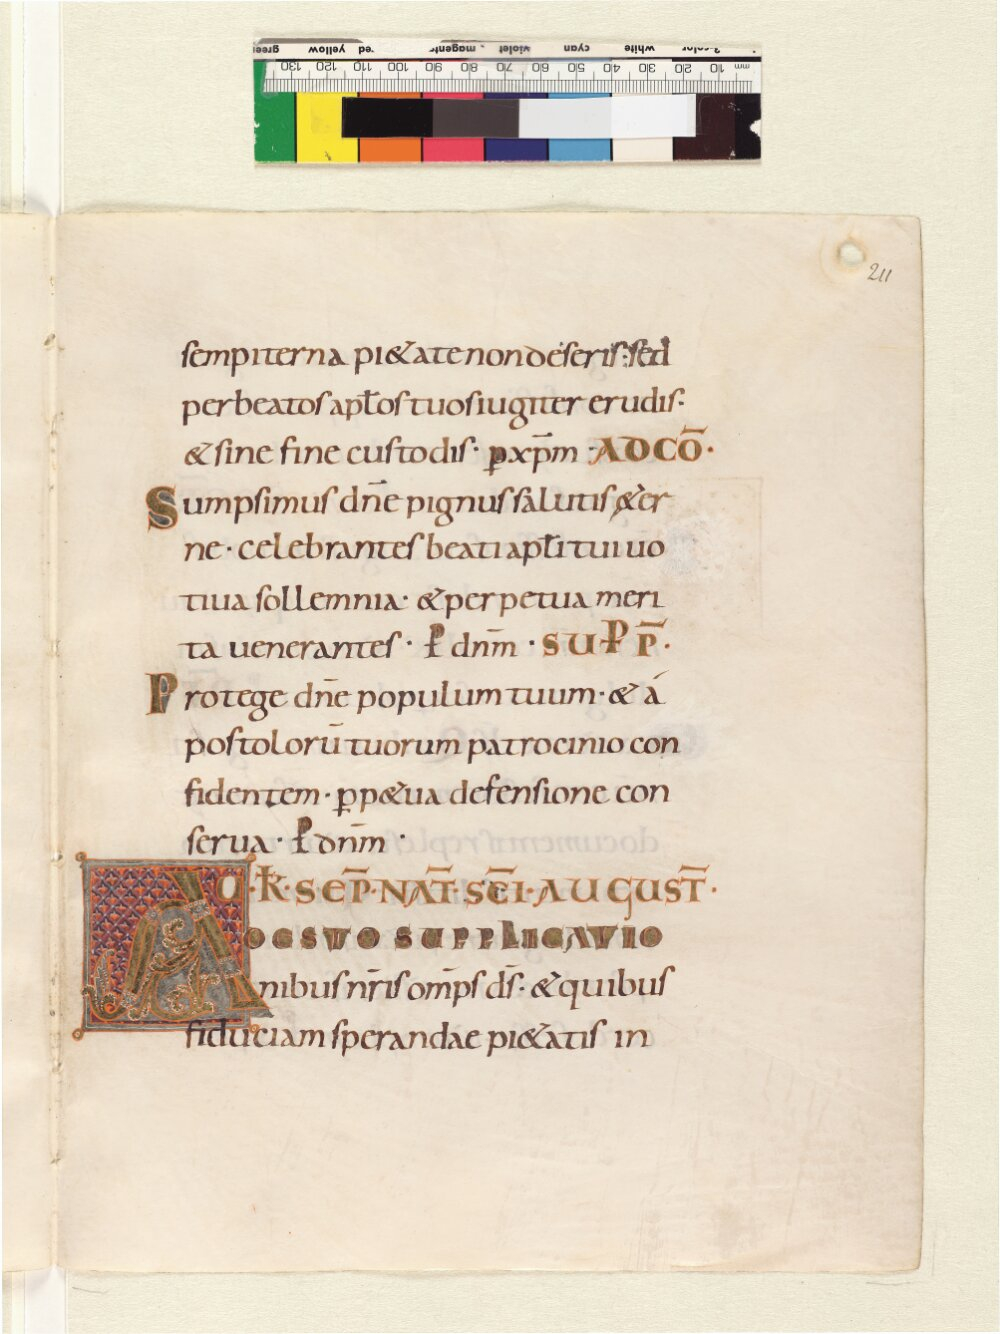 green yellow red magenta violet cyan white 3-color
130 120 110 100 90 80 70 60 50 40 30 20 10 mm
211
sempiterna pi&ate non deseris: sed
per beatos apłos tuos iugiter erudis·
& sine fine custodis· p̲xp̄m · AD CŌ·
Sumpsimus dn̄e pignus salutis &er
ne· celebrantes beati apłi tui uo
tiua sollemnia· & perpetua meri
ta uenerantes· P dnm̄ · SUPP̄·
Protege dn̄e populum tuum· & a
postolorū tuorum patrocinio con
fidentem· ꝑp&ua defensione con
serua· P dnm̄ ·
U·K̄·SEP̄·NAT̄·SC̄I·AUGUST̄·
ADESTO SUPPLICATIO
nibus nr̄is om̄ps ds̄· & quibus
fiduciam sperandae pi&atis in